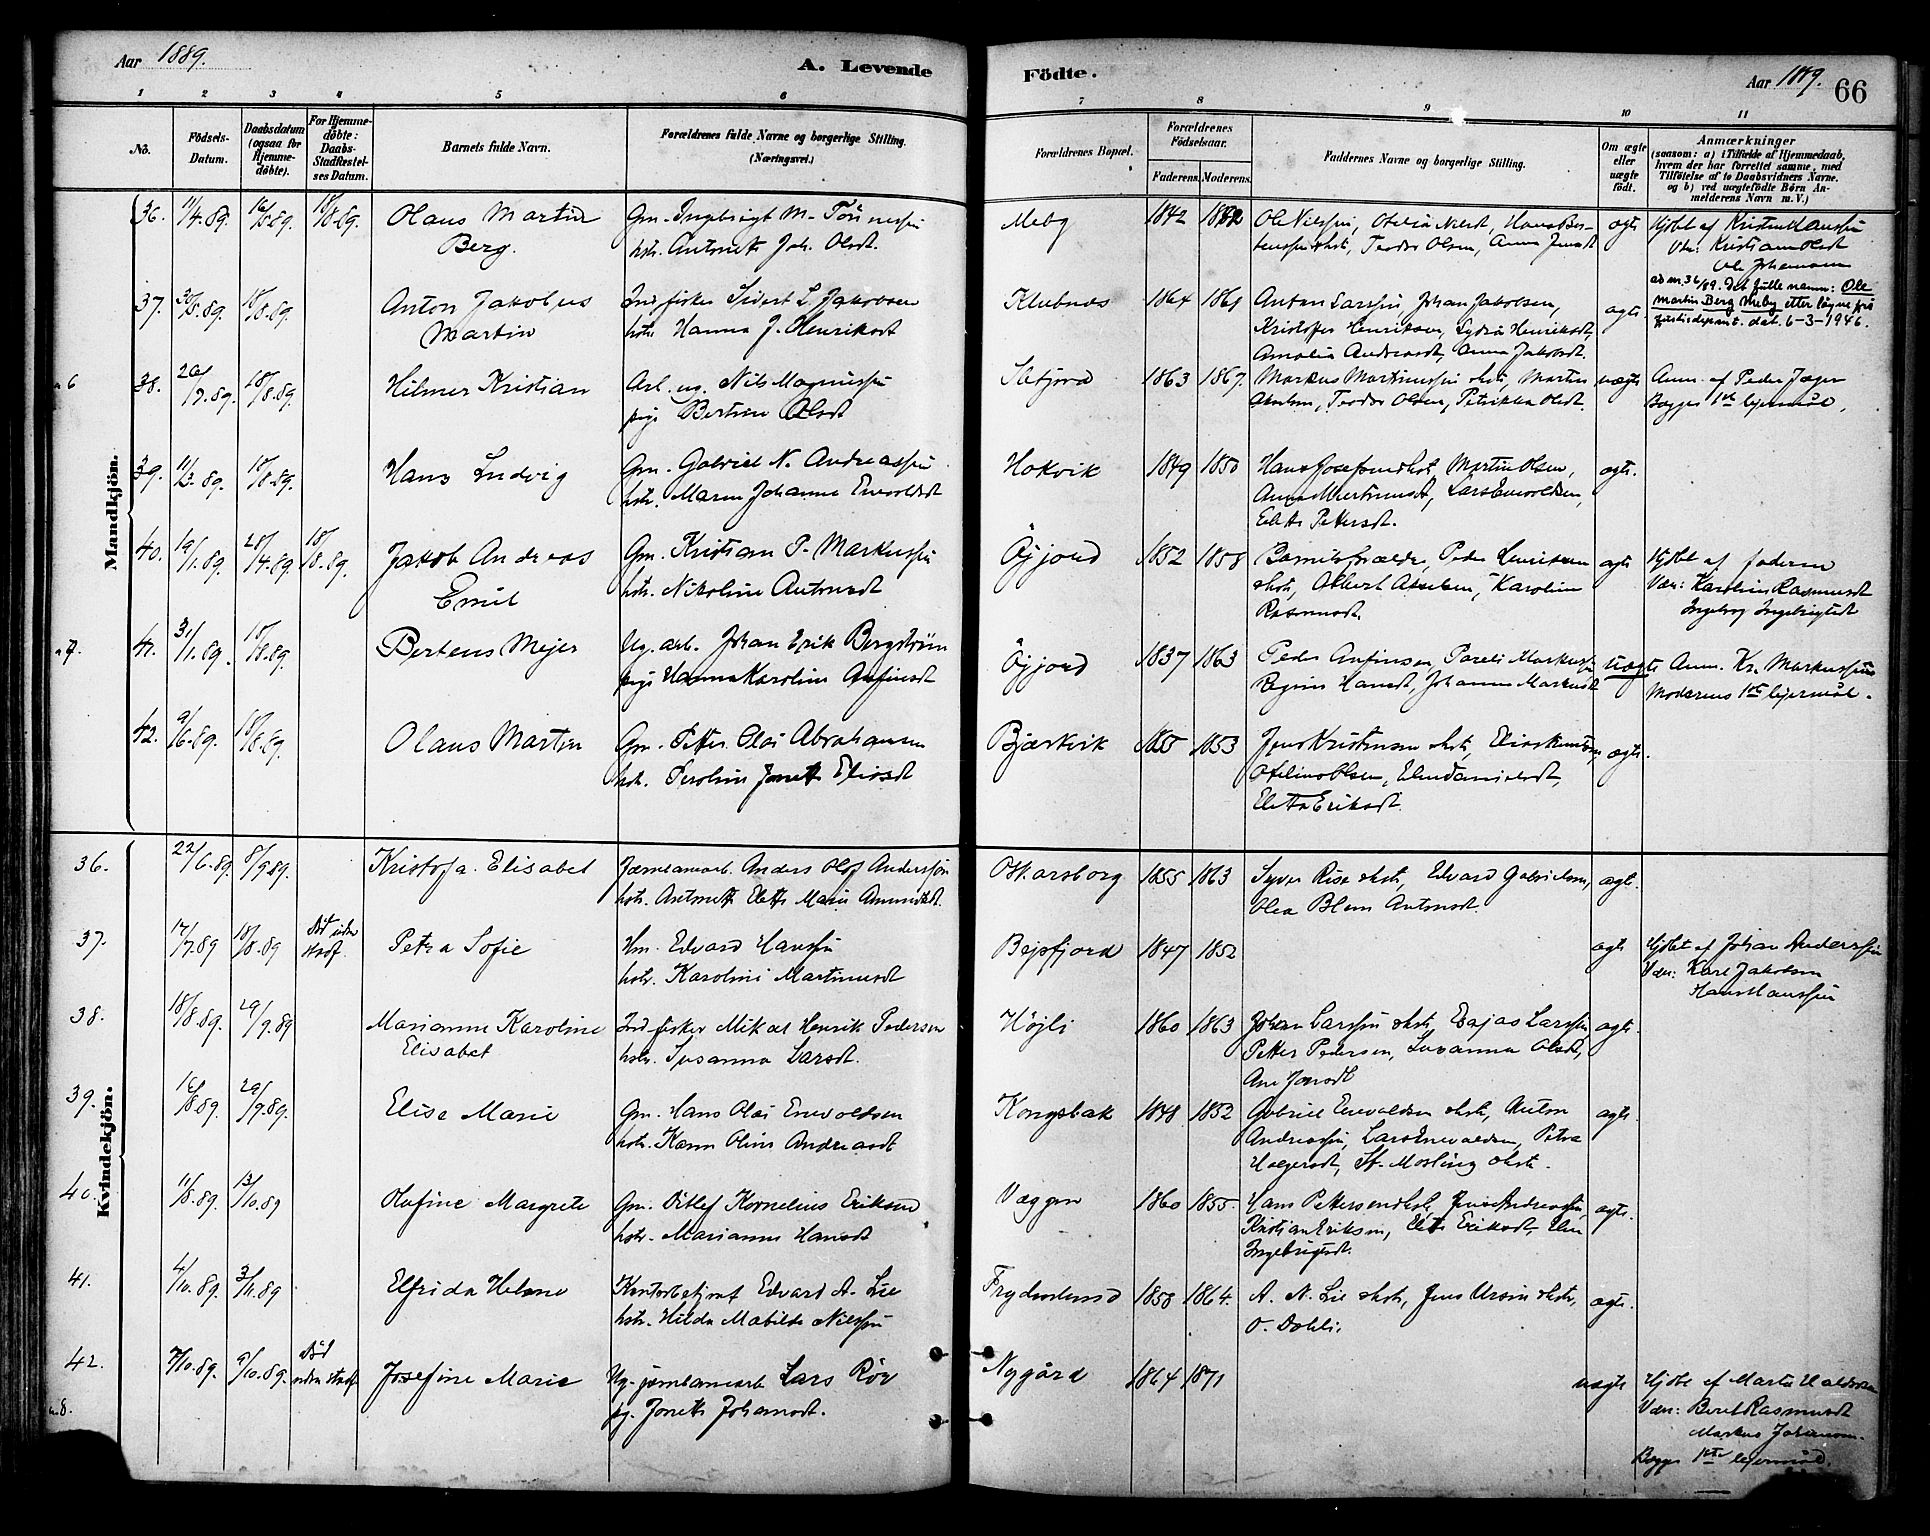 Aar 1889.
A. Levende
Födte.
Aar 1889.
66
1 2 3 4 5 6 7 8 9 10 11
No.
Födsels-Datum.
Daabsdatum (ogsaa for Hjemmedöbte).
For Hjemmedöbte: Daabs-Stadfæstelses Datum.
Barnets fulde Navn.
Forældrenes fulde Navne og borgerlige Stilling. (Næringsvei.)
Forældrenes Bopæl.
Forældrenes Födselsaar.
Faderens. Moderens.
Faddernes Navne og borgerlige Stilling.
Om ægte eller uægte födt.
Anmærkninger
(saasom: a) i Tilfælde af Hjemmedaab, hvem der har forrettet samme, med Tilföielse af to Daabsvidners Navne. og b) ved uægtefödte Börn Anmelderens Navn m.V.)
Mandkjön.
36. 11/4.89. 18/8.89. Olaus Martin
Berg.
Gm. Ingebrigt M.
hstr. Antonette Joh. Olsdt.
Meby 1842
Ole Nilssen, Teodor Olsen, Anna
ægte
Hjdbt af Kristen Hanssen
Vdn: Kristiane Olsdt
Ole Johansen
ad nr. 36/89. Det fulle navn: Ole
Martin Berg Meby etter løyve frå
justisdepmt. dat. 6-3-1946.
37. 18/8.89. Anton Jakobus
Martin
Ind. fisker Sivert L. Jakobsen
hstr. Hanna J. Henriksdt
Klubnes 1864 1861
Anton Larssen, Johan Jakobsen,
Kristoffer Henriksen, Lydia Henriksdt,
Amalia Andreasdt, Anna Jakobsdt.
ægte.
a 6
38. 18/8.89. Hilmer Kristian
Arb. ug. Nils Magnussen
pige Bertine Olsdt
1863 1867.
Markus Martinussen hstr, Martin
Teodor Olsen, Petrikka Olsdt.
uægte
Anm. af Peder Jæger
Begges 1ste leiermål.
39. 18/8.89. Hans Ludvig
Gm. Gabriel N. Andreassen
hstr. Maren Johanne Enevoldsdt
Hokvik 1849 1850
Martin Olsen,
Lars Enevoldsen,
Petersdt.
ægte.
40. 19/1.89. 28/4.89. 18/8.89. Jakob Andreas
Emil
Gm. Kristian P. Markussen
hstr. Nikoline Antonsdt
Øyjord 1852 1858
Barnets forældre, Peder
hstr, Albert Karoline
Rasmusdt.
ægte
Hjdbt af faderen
Vdn: Karoline Rasmusdt
Ingeborg Ingebrigtsdt
a 7.
41. 31/1.89. 18/8.89. Bertens Mejer
Ug. arb. Johan Erik Bergstrøm
pige Hanna Karoline Anfinsdt
Øyjord 1837 1863
Peder Anfinsen, Pareli Markussen
Regine Hansdt, Johanne Markusdt
uægte
Anm. Kr. Markussen
Moderens 1ste leiermål.
42. 9/6.89. 18/8.89. Olaus Martin
Gm. Petter Olai Abrahamsen
hstr. Peroline Jonette Eliasdt
Bjærkvik 1855 1853
Jens Kristensen hstr,
Ofelius Olsen, Elen Danielsdt,
Eletta Eriksdt.
ægte.
Kvindekjön.
36. 22/6.89. 8/9.89. Kristofa Elisabet
Jærnbanearb. Anders Olof Andersson
hstr. Antonette Elette Marie Amundsdt.
Oskarsborg 1855 1863
Syver Rise hstr, Edvard Gabrielsen,
Olea Blom Antonsdt.
ægte.
37. 17/7.89 18/8.89 Död uden stadf. Petra Sofie
Hm. Edvard Hanssen
hstr. Karoline Martinusdt
Bejsfjord 1847 1852
ægte
Hjdbt af Johan Anderssen
Vdn: Karl Jakobsen
Hans Hanssen
38. 18/8.89. 29/9.89 Marianne Karoline
Elisabet
Ind. fisker Mikal Henrik Pedersen
hstr. Susanna Larsdt.
Højli 1860 1863
Johan Larssen hstr, Esajas Larssen
Petter Pedersen, Susanna Olsdt,
Ane Jonsdt
ægte.
39. 16/8.89. 29/9.89. Elise Marie
Gm. Hans Olai Enevoldsen
hstr. Karen Oline Andreasdt
Kongsbak 1848 1852
Gabriel Enevoldsen hstr, Anton
Andreassen, Lars Enevoldsen, Petra
Holgersdt, St. Mosling hstr.
ægte.
40. 11/8.89. 13/10.89 Olufine Margrete
Gm. Ditlef Kornelius Eriksen
hstr. Marianne Hansdt
Væggen 1860 1855.
Hans Pettersen hstr, Jens Andreassen,
Kristian Eriksen, Elette Eriksdt, Elen
Ingebrigtsdt.
ægte.
41. 4/10.89. 3/11.89 Elfrida Helene
Kontorbetjent Edvard A. Lie
hstr. Hilda Matilde Nilssen
Frydenlund 1858 1864.
A. N. Lie hstr, Jens Ursin hstr,
O. Dahli.
ægte.
42. 7/10.89. 9/10.89. Död uden stadf. Josefine Marie
Ug. jærnbanearb Lars Rör
pg. Jonette Johansdt.
Nygård 1864 1871
uægte
Hjdbt af Martin
Vdn: Beret Rasmusdt
Markus Johansen.
Begges 1ste leiermål.
a. 8.